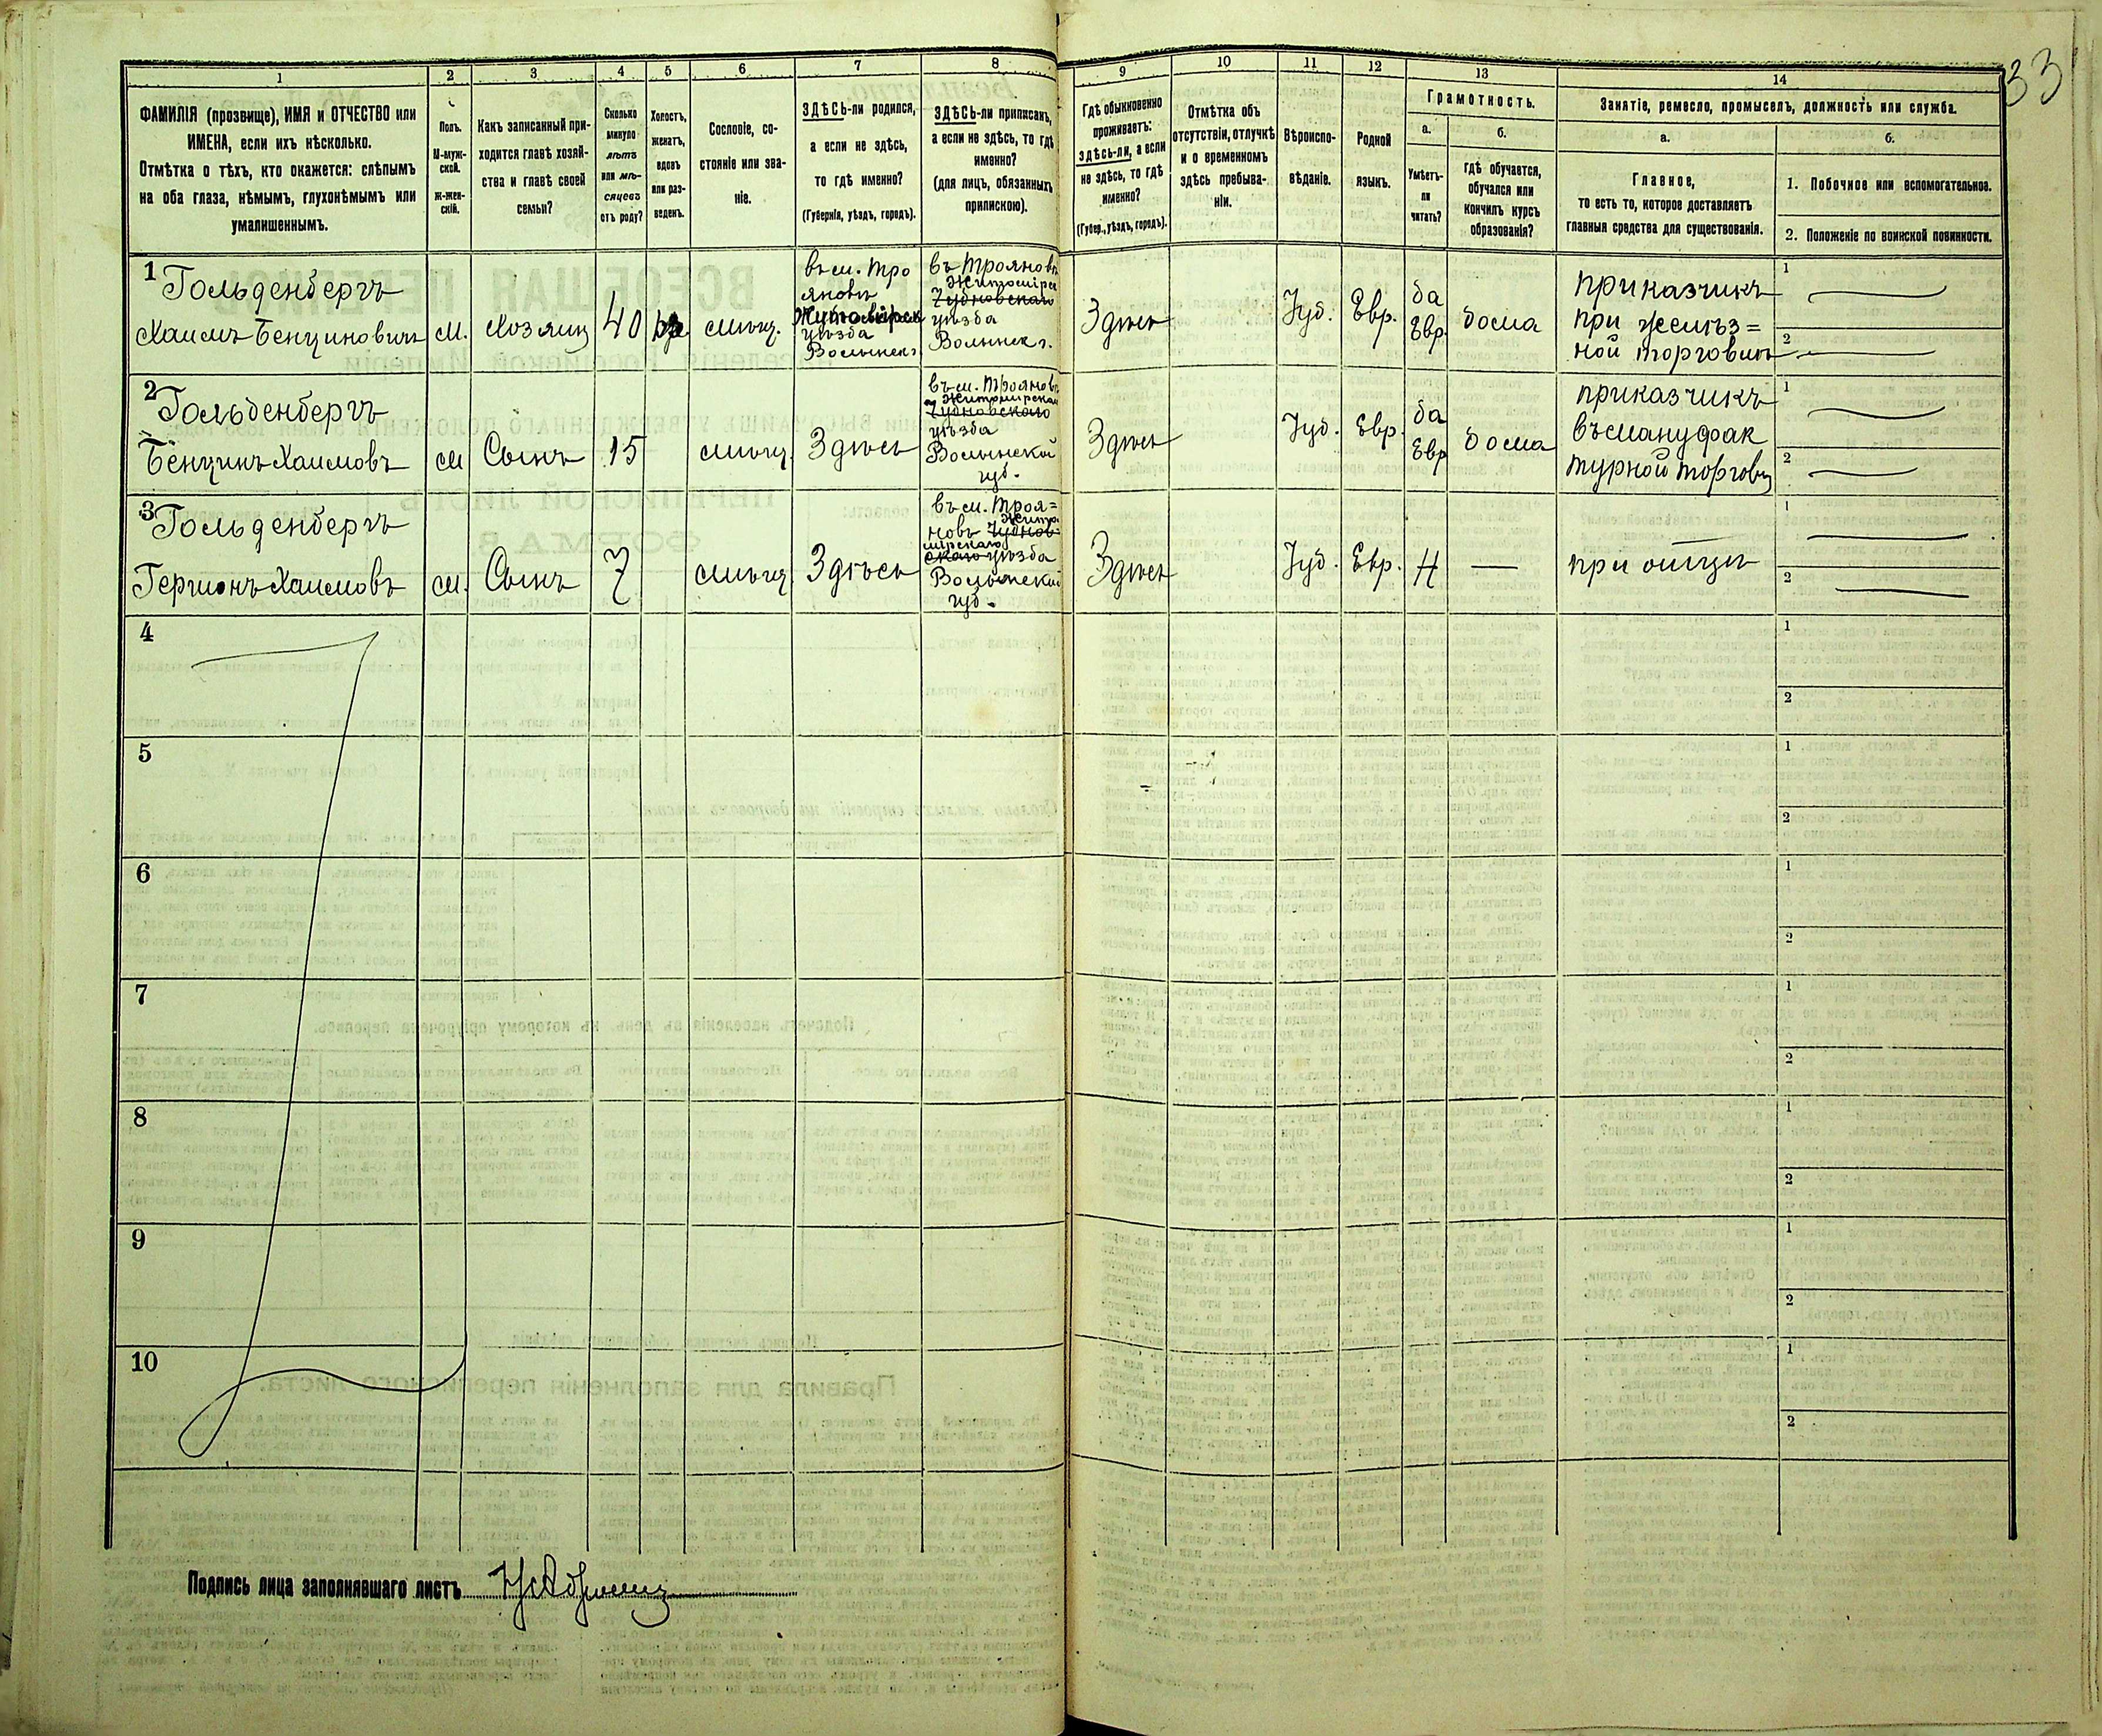 33
1 2 3 4 5 6 7 8 9 10 11 12 13 14
ФАМИЛІЯ (прозвище), ИМЯ и ОТЧЕСТВО или
ИМЕНА, если ихъ нѣсколько.
Отмѣтка о тѣхъ, кто окажется: слѣпымъ
на оба глаза, нѣмымъ, глухонѣмымъ или
умалишеннымъ.
Полъ.
М-муж-
ской.
ж-жен-
скій.
Какъ записанный при-
ходится главѣ хозяй-
ства и главѣ своей
семьи?
Сколько
минуло
лѣтъ
или мѣ-
сяцевъ
отъ роду?
Холостъ,
женатъ,
вдовъ
или раз-
веденъ.
Сословіе, со-
стояніе или зва-
ніе.
ЗДѢСЬ-ли родился,
а если не здѣсь,
то гдѣ именно?
(Губернія, уѣздъ, городъ).
ЗДѢСЬ-ли приписанъ,
а если не здѣсь, то гдѣ
именно?
(для лицъ, обязанныхъ
припискою).
Гдѣ обыкновенно
проживаетъ:
здѣсь-ли, а если
не здѣсь, то гдѣ
именно?
(Губер., уѣздъ, городъ).
Отмѣтка объ
отсутствіи, отлучкѣ
и о временномъ
здѣсь пребыва-
ніи.
Вѣроиспо-
вѣданіе.
Родной
языкъ.
Грамотность.
а.
Умѣетъ-
ли
читать?
б.
гдѣ обучается,
обучался или
кончилъ курсъ
образованія?
Занятіе, ремесло, промыселъ, должность или служба.
а.
Главное,
то есть то, которое доставляетъ
главныя средства для существованія.
б.
1. Побочное или вспомогательное.
2. Положеніе по воинской повинности.
1 Гольденбергъ
Хаимъ Бенциновичъ
м.
Хозяинъ
40
мѣщ.
въ м. Тро
яновъ
Житомірск
уѣзда
Волынск г.
въ Трояновъ
Житомірск
Чудновскаго
уѣзда
Волынск г.
Здѣсь
Іуд.
Евр.
да
Евр.
дома
приказчикъ
при желѣз=
ной торговлѣ
1
2
2 Гольденбергъ
Бенцинъ Хаимовъ
м
Сынъ
15
мѣщ.
Здѣсь
въ м. Трояновъ
Житомирскаго
Чудновского
уѣзда
Волынской
губ.
Здѣсь
Іуд.
Евр.
да
Евр
дома
приказчикъ
въ мануфак
турной торговл
1
2
3 Гольденбергъ
Гершонъ Хаимовъ
м.
Сынъ
7
мѣщ
Здѣсь
въ м. Троя=
новъ Житo
Чуднов
мірскаго
скаго уѣзда
Волынской
губ.
Здѣсь
Іуд.
Евр.
Н
—
при отцѣ
1
2
4
1
2
5
1
2
6
1
2
7
1
2
8
1
2
9
1
2
10
1
2
Подпись лица заполнявшаго листъ